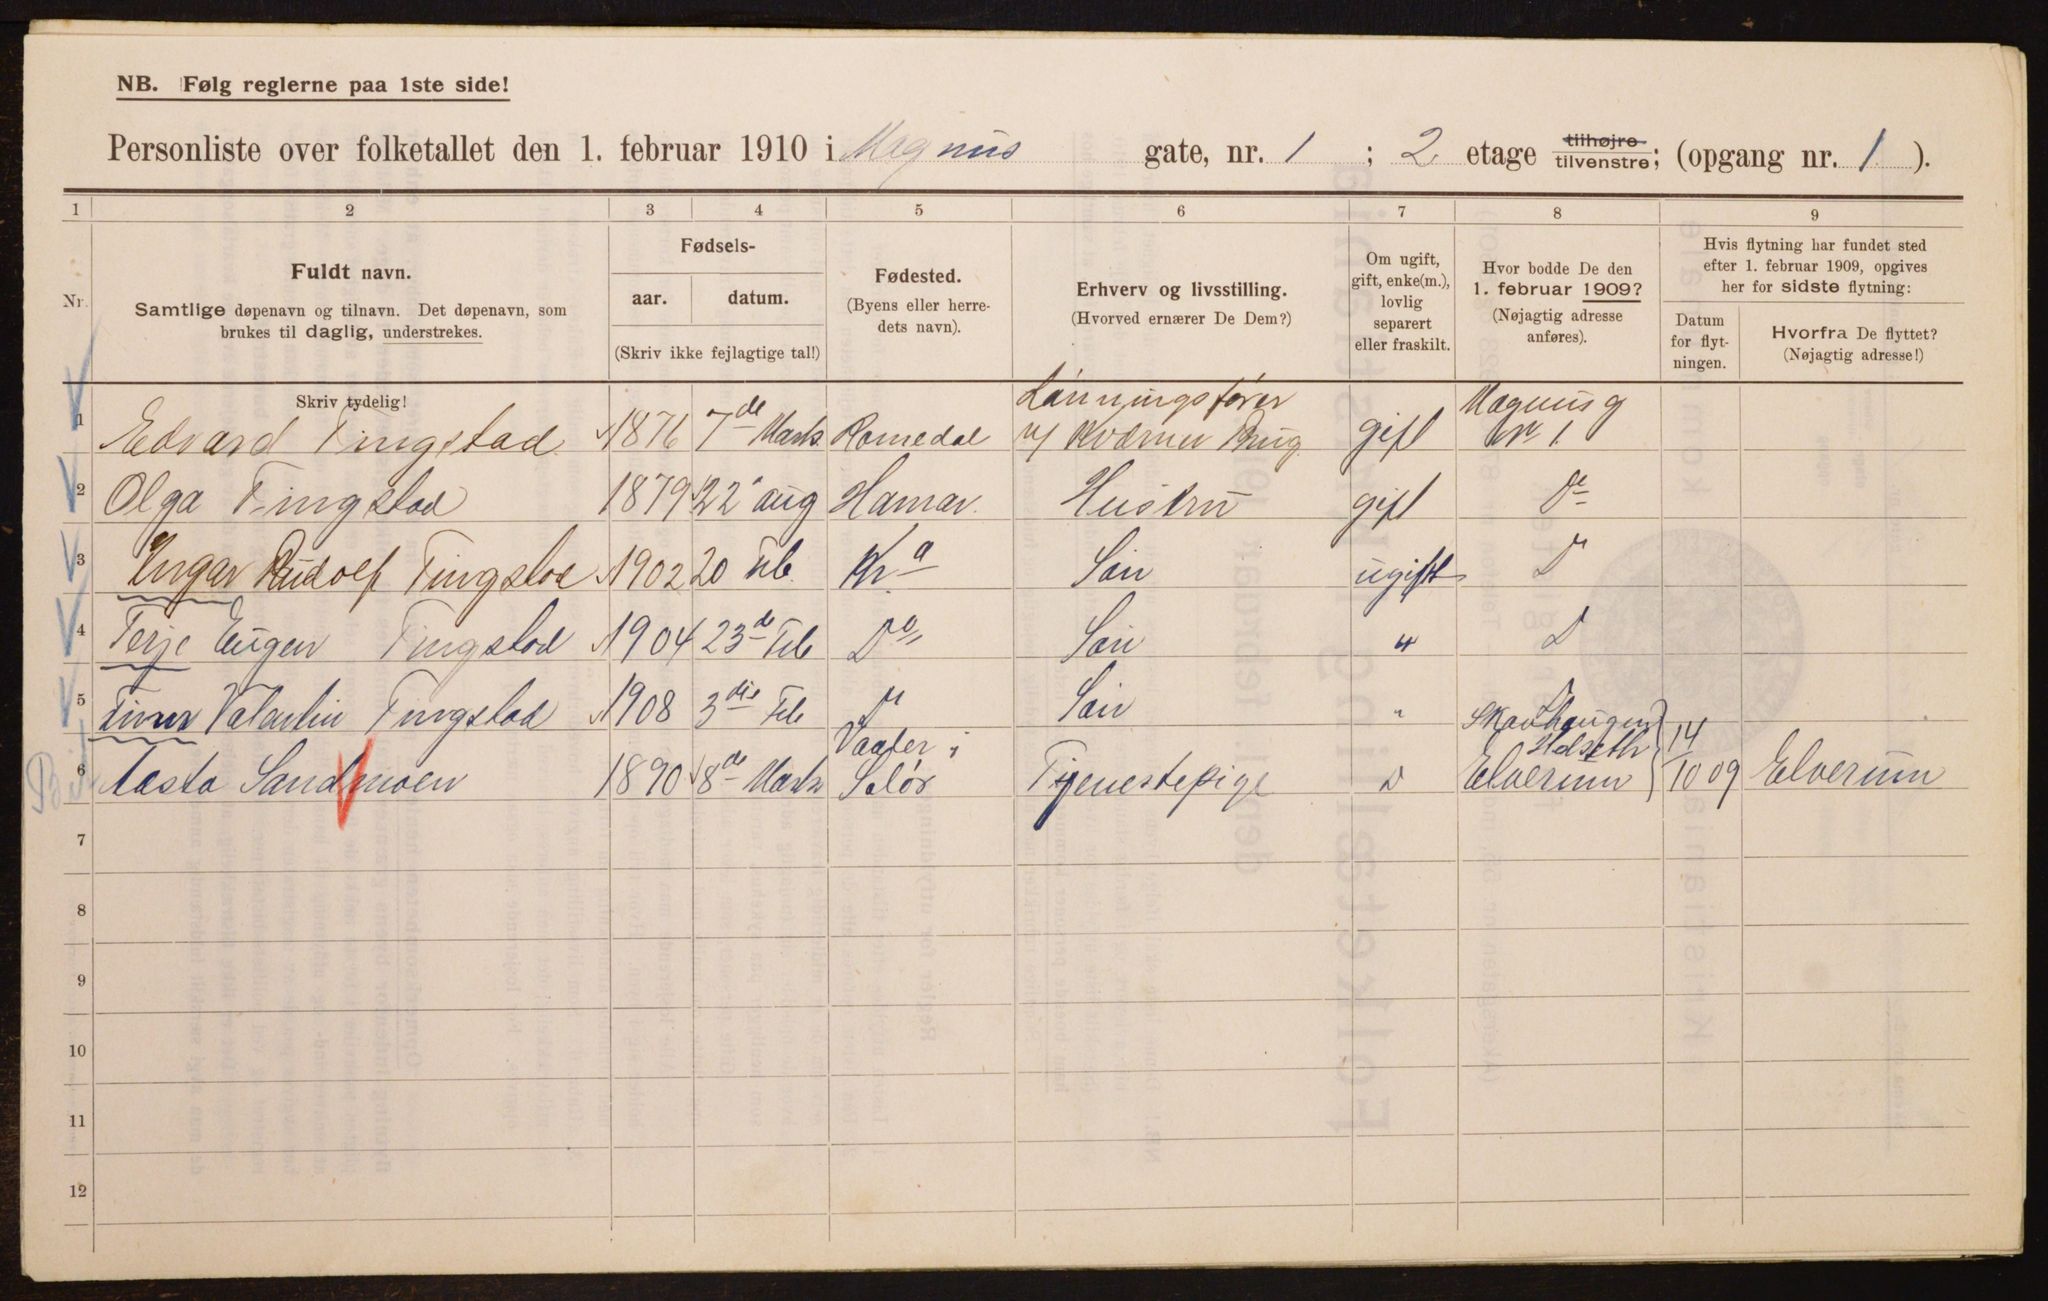 NB. Følg reglerne paa 1ste side!
Personliste over folketallet den 1. februar 1910 i Magnus gate, nr. 1 ; 2 etage tilhøjre tilvenstre; (opgang nr. 1 ).
1 2 3 4 5 6 7 8 9
Nr.
Fuldt navn.
Samtlige døpenavn og tilnavn. Det døpenavn, som
brukes til daglig, understrekes.
Skriv tydelig!
Fødsels-
aar. datum.
(Skriv ikke fejlagtige tal!)
Fødested.
(Byens eller herre-
dets navn).
Erhverv og livsstilling.
(Hvorved ernærer De Dem?)
Om ugift,
gift, enke(m.),
lovlig
separert
eller fraskilt.
Hvor bodde De den
1. februar 1909?
(Nøjagtig adresse
anføres).
Hvis flytning har fundet sted
efter 1. februar 1909, opgives
her for sidste flytning:
Datum
for flyt-
ningen.
Hvorfra De flyttet?
(Nøjagtig adresse!)
Lønningsfører Magnus g
1 Edvard Tingstad 1876 7de Marts Romedal v/ Kværner Brug gift nr 1.
2 Olga Tingstad 1879 22 aug Hamar. Hustru gift Do
3 Yngar Rudolf Tingstad 1902 20 Feb. Kr.a Søn ugift D
4 Terje Eugen Tingstad 1904 23de Feb Do Søn " D
5 Valentin Tingstad 1908 3die Feb D Søn " D
Vaaler i Skavhaugen 14
6 Aasta Sandmoen 1890 8de Marts Solør Tjenestepige D Elverum 10 09 Elverum
7
8
9
10
11
12